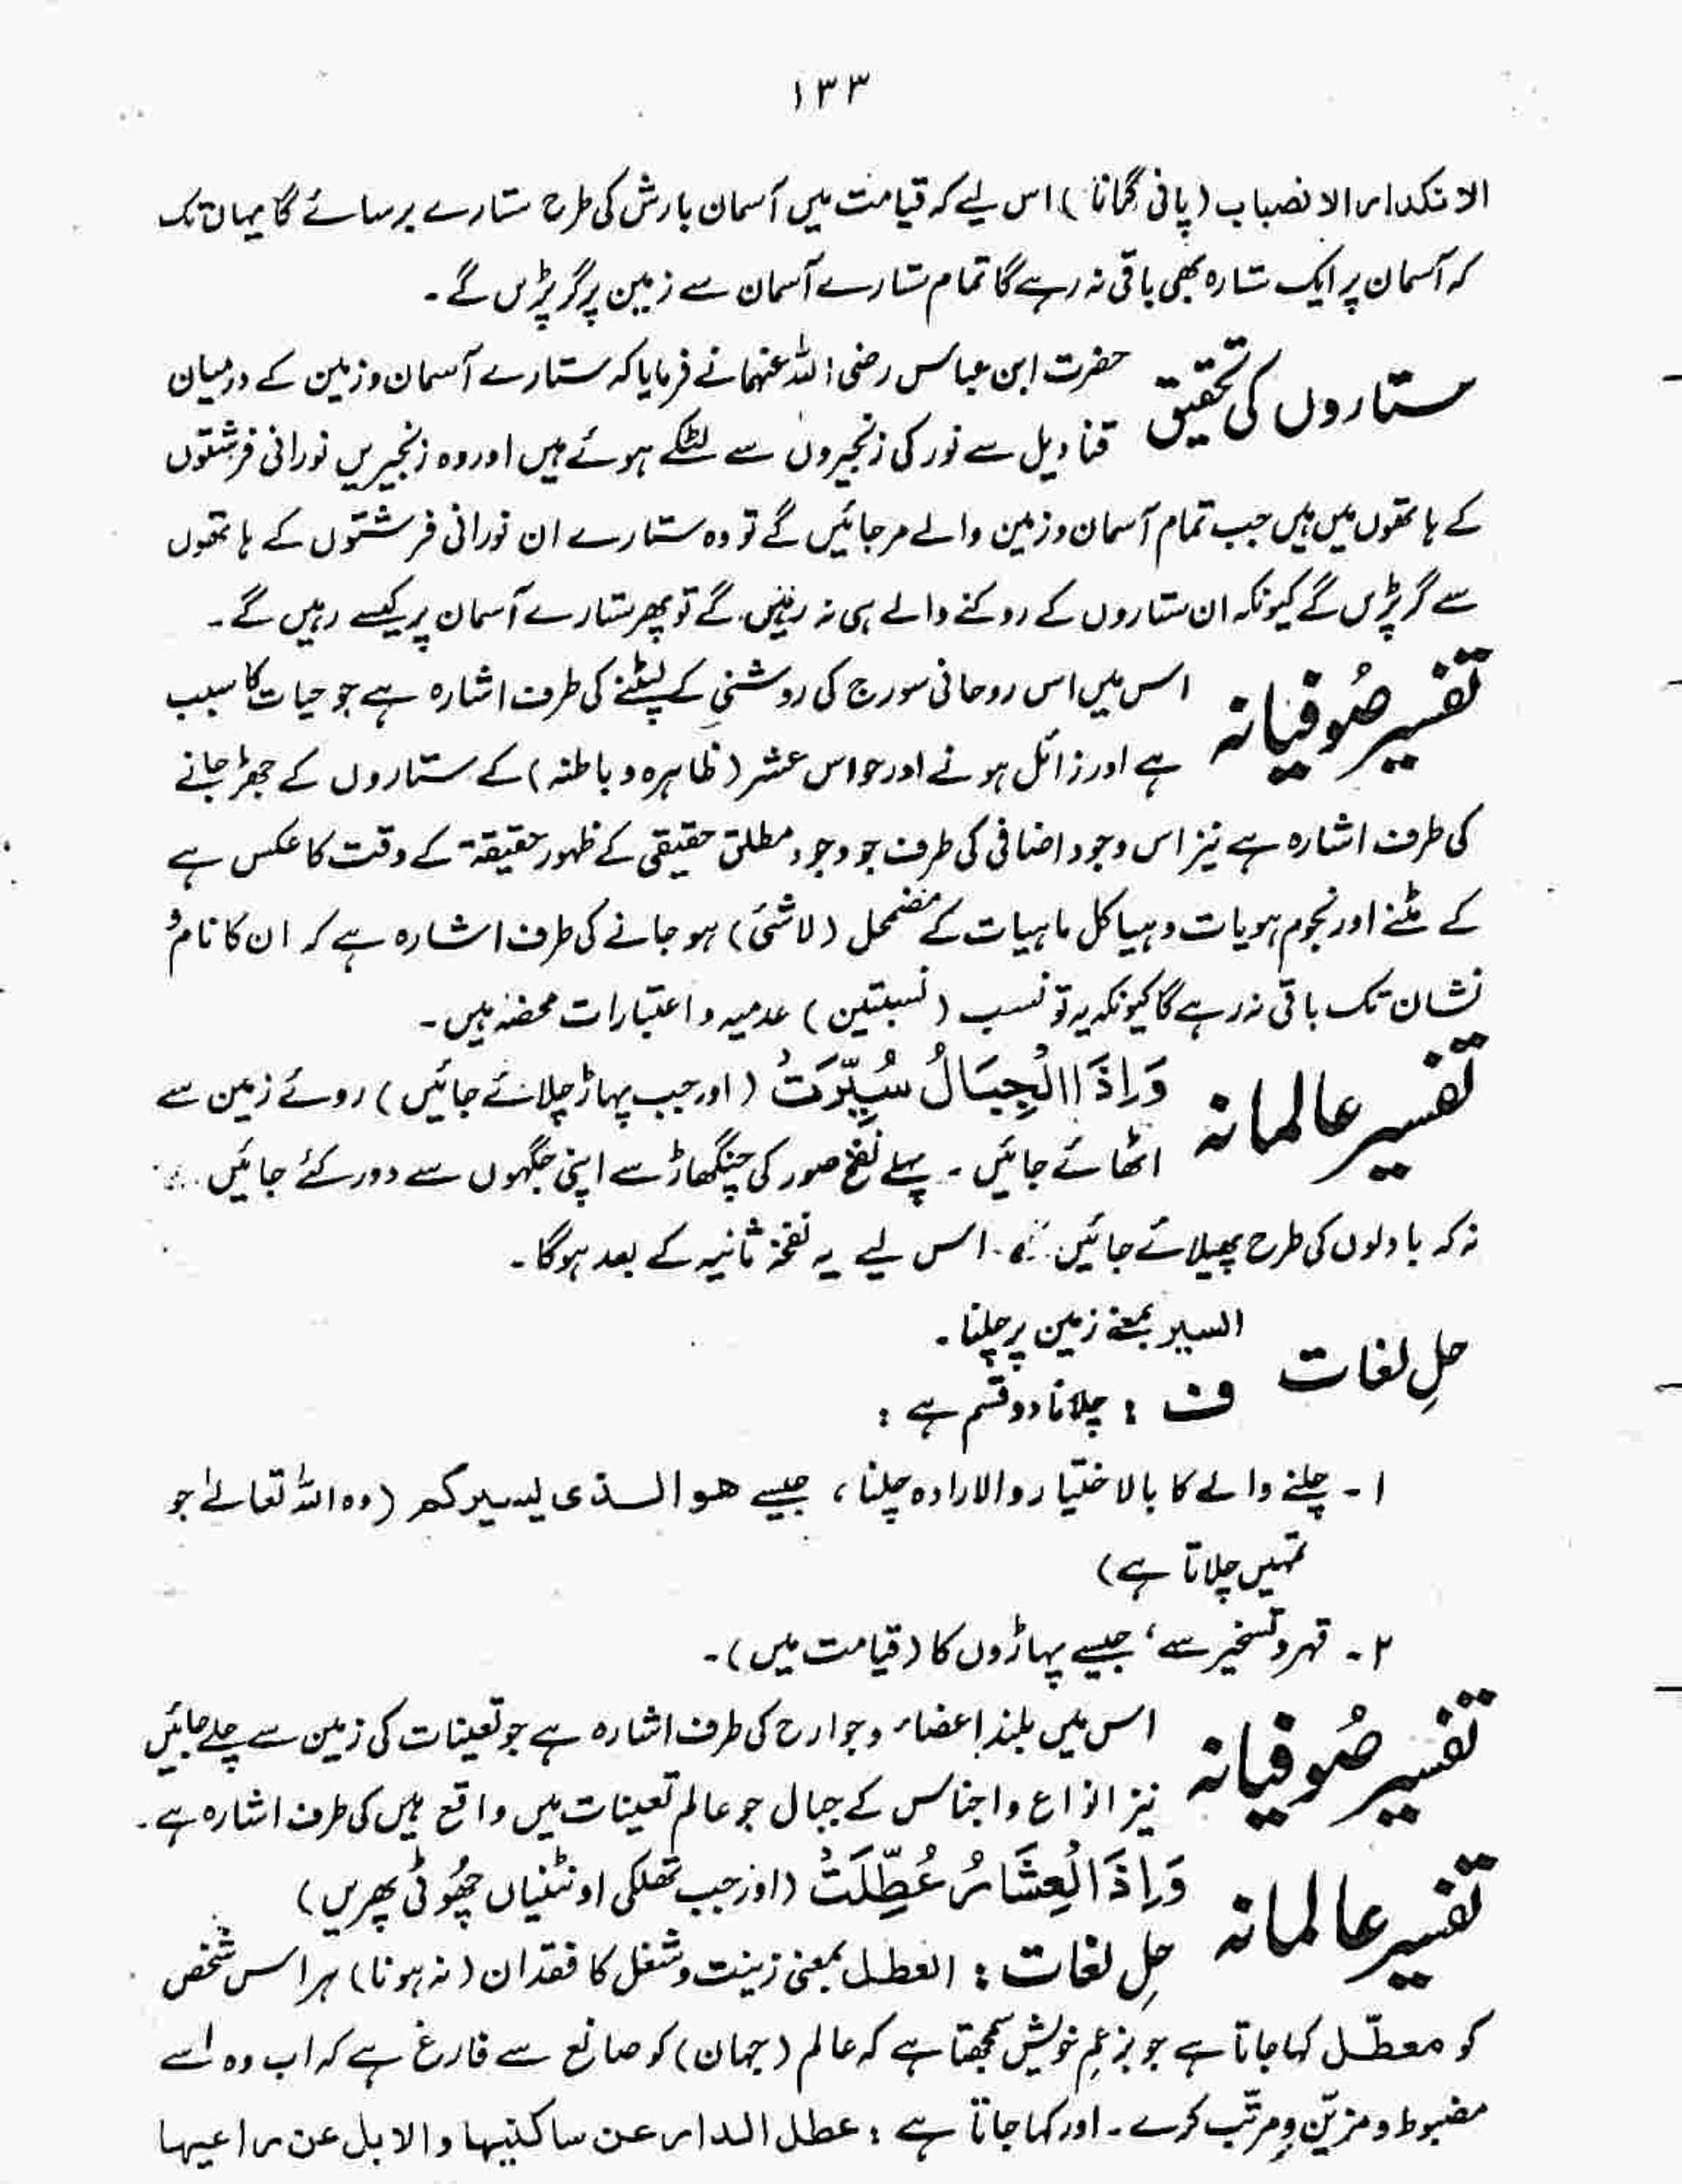 ۱۳۳
الانکدار الانصباب (پانی گرانا) اس لیے کہ قیامت میں آسمان بارش کی طرح ستارے برسائے گا یہاں تک
کہ آسمان پر ایک ستارہ بھی باقی نہ رہے گا تمام ستارے آسمان سے زمین پر گر پڑیں گے۔
ستاروں کی تحقیق حضرت ابن عباس رضی اللہ عنہما نے فرمایا کہ ستارے آسمان و زمین کے درمیان
قنادیل سے نور کی زنجیروں سے لٹکے ہوئے ہیں اور وہ زنجیریں نورانی فرشتوں
کے ہاتھوں میں ہیں جب تمام آسمان و زمین والے مر جائیں گے تو وہ ستارے ان نورانی فرشتوں کے ہاتھوں
سے گر پڑیں گے کیونکہ ان ستاروں کے روکنے والے ہی نہ رہیں گے تو پھر ستارے آسمان پر کیسے رہیں گے۔
تفسیر صُوفیانہ اس میں اس روحانی سورج کی روشنی کے لپٹنے کی طرف اشارہ ہے جو حیات کا سبب
ہے اور زائل ہونے اور حواس عشر (ظاہرہ و باطنہ) کے ستاروں کے جھڑ جانے
کی طرف اشارہ ہے نیز اس وجود اضافی کی طرف جو وجود مطلق حقیقی کے ظہور حقیقۃ کے وقت کا عکس ہے
کے مٹنے اور نجوم ہویات و ہیاکل ماہیات کے مضمحل (لاشئ) ہو جانے کی طرف اشارہ ہے کہ ان کا نام و
نشان تک باقی نہ رہے گا کیونکہ یہ تو نسب (نسبتین) عدمیہ و اعتبارات محضہ ہیں۔
تفسیر عالمانہ وَاِذَا الْجِبَالُ سُیِّرَتْ (اور جب پہاڑ چلائے جائیں) روئے زمین سے
اٹھائے جائیں۔ پہلے نفخ صور کی چنگھاڑ سے اپنی جگہوں سے دور کئے جائیں
نہ کہ بادلوں کی طرح پھیلائے جائیں گے۔ اس لیے یہ نفخۂ ثانیہ کے بعد ہوگا۔
حلِ لغات السیر بمعنے زمین پر چلنا۔
ف : چلانا دو قسم ہے :
۱۔ چلنے والے کا بالاختیار والارادہ چلنا، جیسے ھوالذی یسیرکم (وہ اللہ تعالیٰ جو
تمہیں چلاتا ہے)
۲۔ قہر و تسخیر سے، جیسے پہاڑوں کا (قیامت میں)۔
تفسیر صُوفیانہ اس میں بلند اعضاء و جوارح کی طرف اشارہ ہے جو تعینات کی زمین سے چلے جائیں
نیز انواع و اجناس کے جبال جو عالم تعینات میں واقع ہیں کی طرف اشارہ ہے۔
تفسیر عالمانہ وَاِذَا الْعِشَارُ عُطِّلَتْ (اور جب تھلکی اونٹنیاں چھُوٹی پھریں)
حلِ لغات : العطل بمعنی زینت و شغل کا فقدان (نہ ہونا) ہر اس شخص
کو معطّل کہا جاتا ہے جو بزعمِ خویش سمجھتا ہے کہ عالم (جہان) کو صانع سے فارغ ہے کہ اب وہ اسے
مضبوط و مزیّن و مرتّب کرے۔ اور کہا جاتا ہے : عطل الدار عن ساکنیہا والابل عن راعیہا